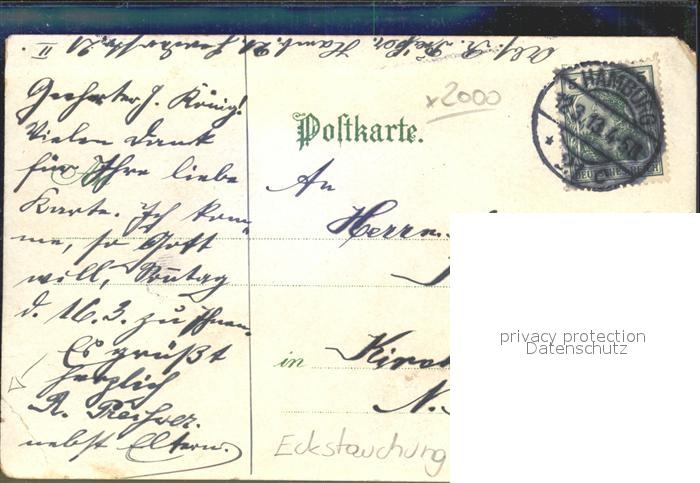 Hamb. 21,
II
Geehrter H. König!
Vielen Dank
für Ihre liebe
Karte. Ich kom-
me, so Gott
will, Sonntag
d. 16.3. zu Ihnen.
Es grüßt
herzlich
R.
nebst Eltern.
x2000
Postkarte.
An
Herrn
in
N.
Eckstauchung
HAMBURG
12.3.13.4-5N
DEUTSCHES REICH
privacy protection
Datenschutz